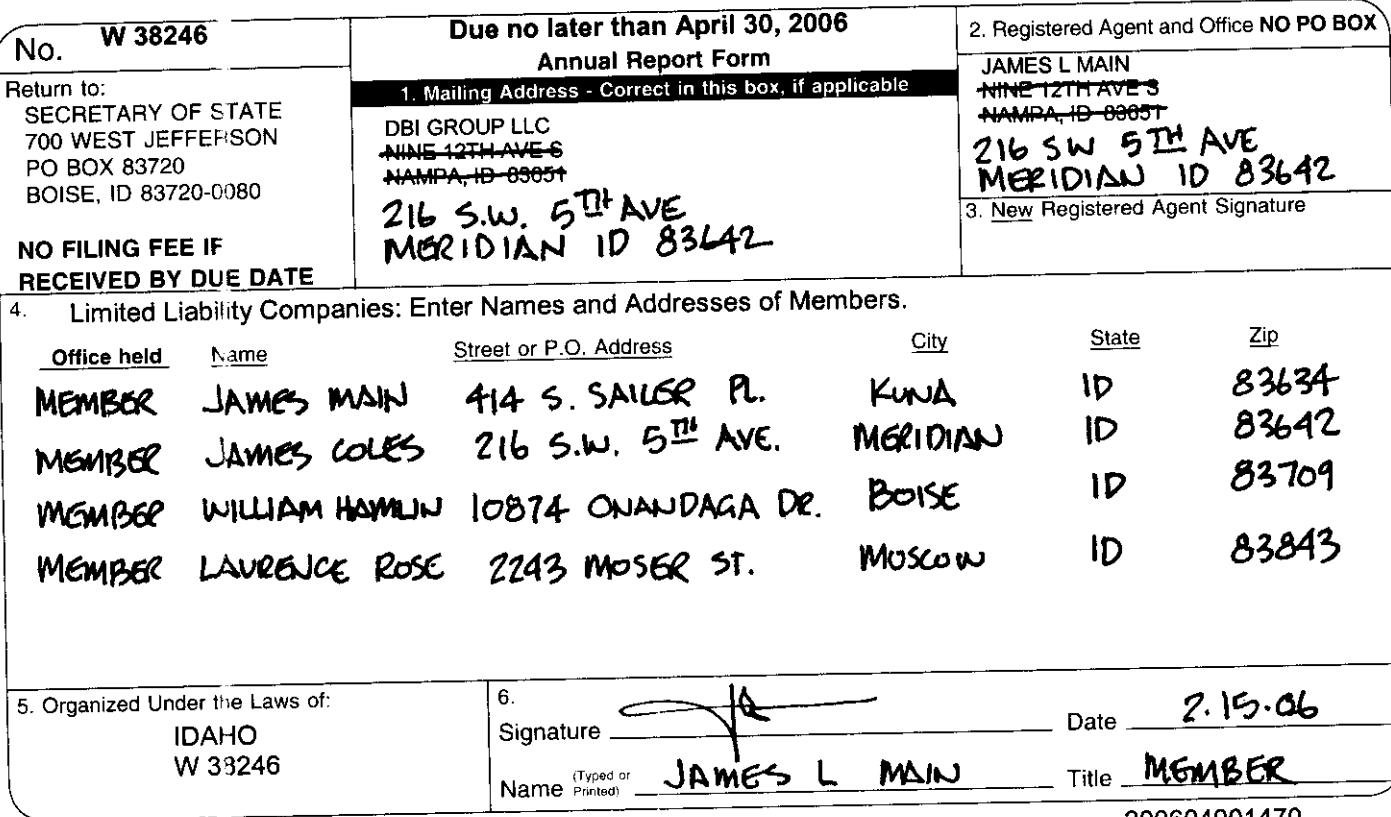 No. W 38246
Return to:
SECRETARY OF STATE
700 WEST JEFFERSON
PO BOX 83720
BOISE, ID 83720-0080
NO FILING FEE IF
RECEIVED BY DUE DATE
Due no later than April 30, 2006
Annual Report Form
1. Mailing Address - Correct in this box, if applicable
DBI GROUP LLC
NINE 12TH AVE S
NAMPA, ID 83651
216 S.W. 5TH AVE
MERIDIAN ID 83642
2. Registered Agent and Office NO PO BOX
JAMES L MAIN
NINE 12TH AVE S
NAMPA, ID 83651
216 SW 5TH AVE
MERIDIAN ID 83642
3. New Registered Agent Signature
4. Limited Liability Companies: Enter Names and Addresses of Members.
Office held Name Street or P.O. Address City State Zip
MEMBER JAMES MAIN 414 S. SAILER PL. KUNA ID 83634
MEMBER JAMES COLES 216 S.W. 5TH AVE. MERIDIAN ID 83642
MEMBER WILLIAM HAMLIN 10874 ONANDAGA DR. BOISE ID 83709
MEMBER LAURENCE ROSE 2243 MOSER ST. MOSCOW ID 83843
5. Organized Under the Laws of:
IDAHO
W 38246
6.
Signature Date 2.15.06
Name (Typed or Printed) JAMES L MAIN Title MEMBER